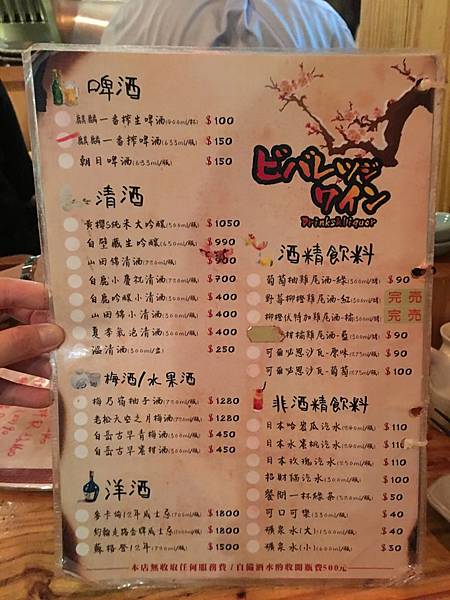 啤酒
麒麟一番搾生啤酒(400ml/杯) $100
麒麟一番搾啤酒(633ml/瓶) $150
朝日啤酒(633ml/瓶) $150
清酒
黃櫻S純米大吟釀(500ml/瓶) $1050
白壁藏生吟釀(640ml/瓶) $990
山田錦清酒(720ml/瓶)
白鹿小慶祝清酒(300ml/瓶) $700
白鹿吟釀小清酒(300ml/瓶) $400
山田錦小清酒(300ml/瓶) $400
夏季氣泡清酒(300ml/瓶) $400
溫清酒(300ml/壺) $250
梅酒/水果酒
梅乃宿柚子酒(720ml/瓶) $1280
老松天空之月梅酒(720ml/瓶) $1280
白岳古早青梅酒(300ml/瓶) $450
白岳古早蜜柑酒(300ml/瓶) $450
洋酒
麥卡倫12年威士忌(700ml/瓶) $1800
約翰走路金牌威士忌(700ml/瓶) $1800
蘇格登12年(700ml/瓶) $1500
ビバレッジ
ワイン
Drinks&liquor
酒精飲料
葡萄柚雞尾酒-綠(300ml/罐) $90
野莓柳橙雞尾酒-紅(300ml/罐) 完売
柳橙伏特加雞尾酒-橘(300ml/罐) 完売
柑橘雞尾酒-藍(300ml/罐) $90
可爾必思沙瓦-原味(375ml/瓶) $90
可爾必思沙瓦-葡萄(375ml/瓶) $100
非酒精飲料
日本哈密瓜汽水(250ml/瓶) $110
日本水蜜桃汽水(250ml/瓶) $110
日本玫瑰汽水(250ml/瓶) $110
招財貓汽水(300ml/瓶) $100
餐間一杯綠茶(520ml/瓶) $50
可口可樂(330ml/瓶) $40
礦泉水(大)(500ml/瓶) $40
礦泉水(小)(600ml/瓶) $30
本店無收取任何服務費/自備酒水酌收開瓶費500元